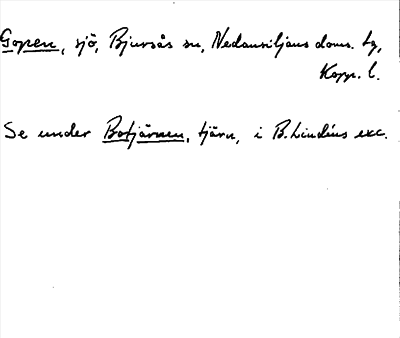 Gopen, sjö, Bjursås sn, Nedansiljans doms. tg,
Kopp. l.
Se under Botjärnen, tjärn, i B. Lindéns exc.